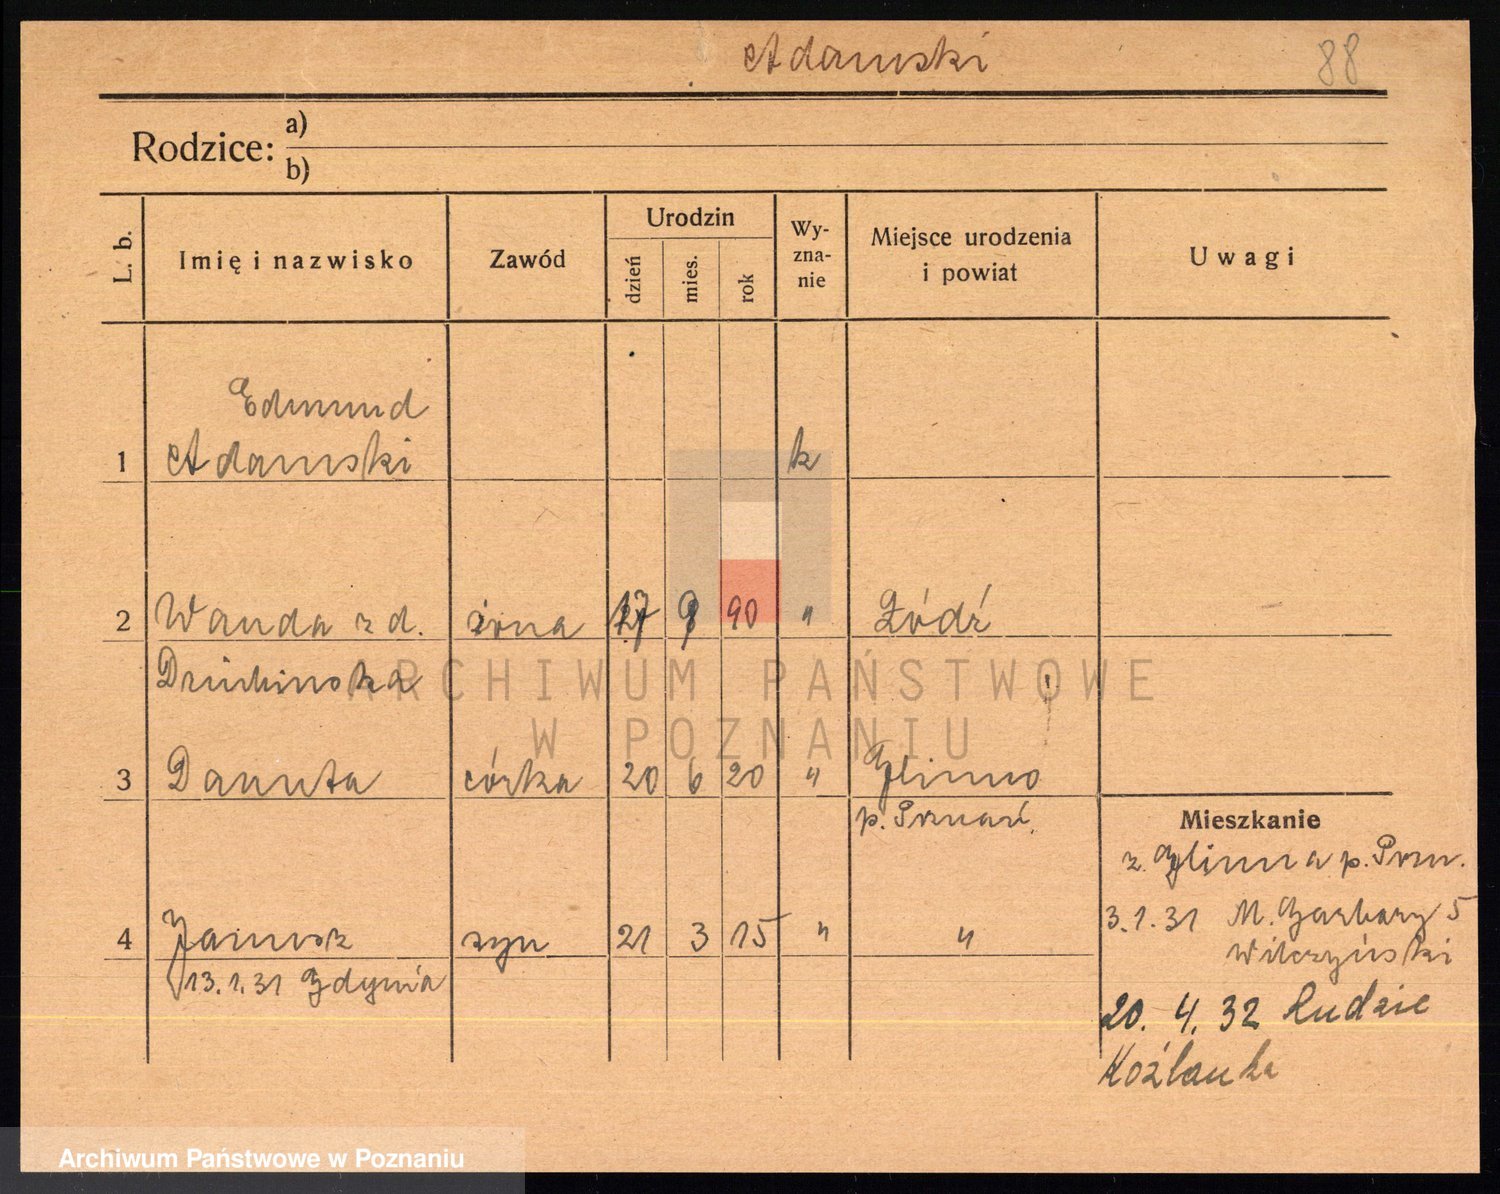 Adamski 88
Rodzice: a)
b)
L. b. Imię i nazwisko Zawód Urodzin dzień mies. rok Wy-zna-nie Miejsce urodzenia i powiat Uwagi
Edmund
1 Adamski k
2 Wanda z d. żona 17 90 " Łódź
3 Danuta córka 20 6 20 " Glinno
p. Poznań.
Mieszkanie
z. Glinna p. Pozn.
4 Janusz syn 21 3 15 " "
3.1.31 M. Garbary 5
Wilczyński
13.1.31 Gdynia
20. 4. 32 Rudzie
Koźlanka
ARCHIWUM PAŃSTWOWE
W POZNANIU
Archiwum Państwowe w Poznaniu